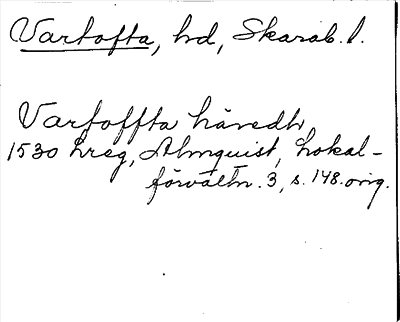 Vartofta, hd, Skarab. l.
Vartoffta häredh
1530 Lreg, Almquist, Lokal-
förvaltn. 3, s. 148. orig.